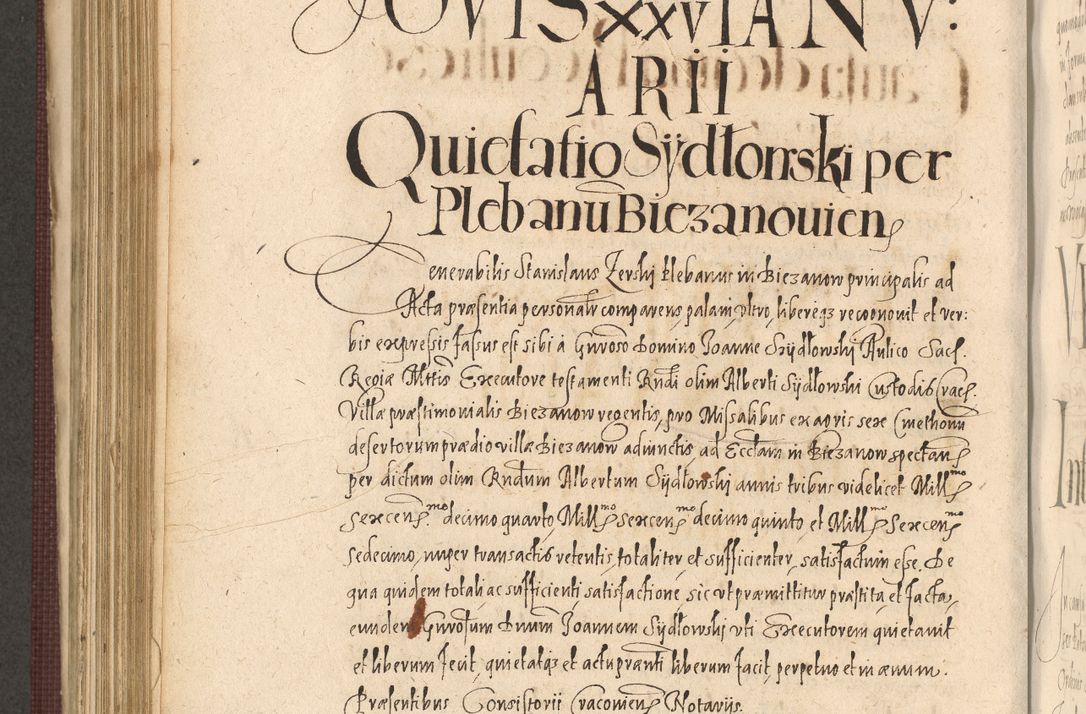 IOVIS XXVI IANV:
ARII
Quietatio Sÿdłowski per
Plebanũ Biezanouien̨
Venerabilis Stanislaus Zerski Plebanus in Biezanow principalis ad
Acta præsentia personalr̃ comparens, palam, vltro, libereqз recognouit et ver:
bis expressis fassus est sibi à Gnroso Domino Joanne Szÿdłowskÿ Aulico Sacʃ.
Regiæ Mttis Executore testamenti Rndi olim Alberti Sÿdłowski Custodis Cracʃ.
Villæ præstimonialis Biezanow regentis, pro Missalibus ex agris sex Cmethonũ
desertorum prædio villæ Biezanow adiunctis ad Ecclam in Biezanow spectan̨
per dictum olim Rndum Albertum Sÿdłowski annis tribus videlicet Mill̨mo
Sexcen̨mo decimo quarto, Mill̨mo Sexcen̨mo decimo quinto, et Mill̨mo Sexcen̨mo
Sedecimo, nuper transactis retentis, totaliter et sufficienter satisfactum esse. De
qua quidem totali ac sufficienti satisfactione, sic vt præmittitur præstita et facta,
eundem Gnrosum Dnum Joannem Sÿdłowskÿ vti Executorem quietauit
et liberum fecit, quietatqз et actu prænti liberum facit, perpetuo et in æuum.
Præsentibus Consistorii Cracouien̨ Notariis.